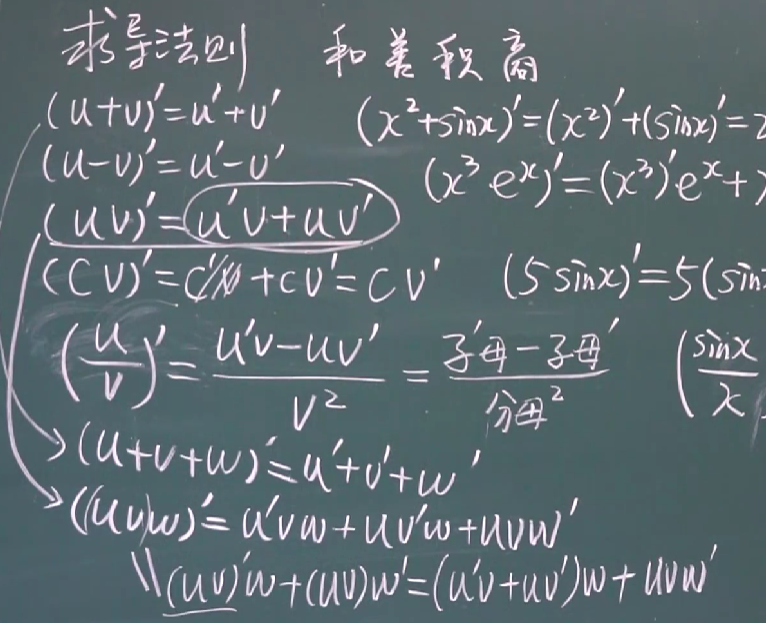 求导法则 和差积商
(u+v)'=u'+v' (x²+sinx)'=(x²)'+(sinx)'=2
(u-v)'=u'-v' (x³eˣ)'=(x³)'eˣ+
(uv)'=u'v+uv'
(Cv)'=C'v+Cv'=Cv' (5sinx)'=5(sin
(u/v)'=(u'v-uv')/v²=(子'母-子母')/分母² (sinx/x
(u+v+w)'=u'+v'+w'
((uv)w)'=u'vw+uv'w+uvw'
\\(uv)'w+(uv)w'=(u'v+uv')w+uvw'